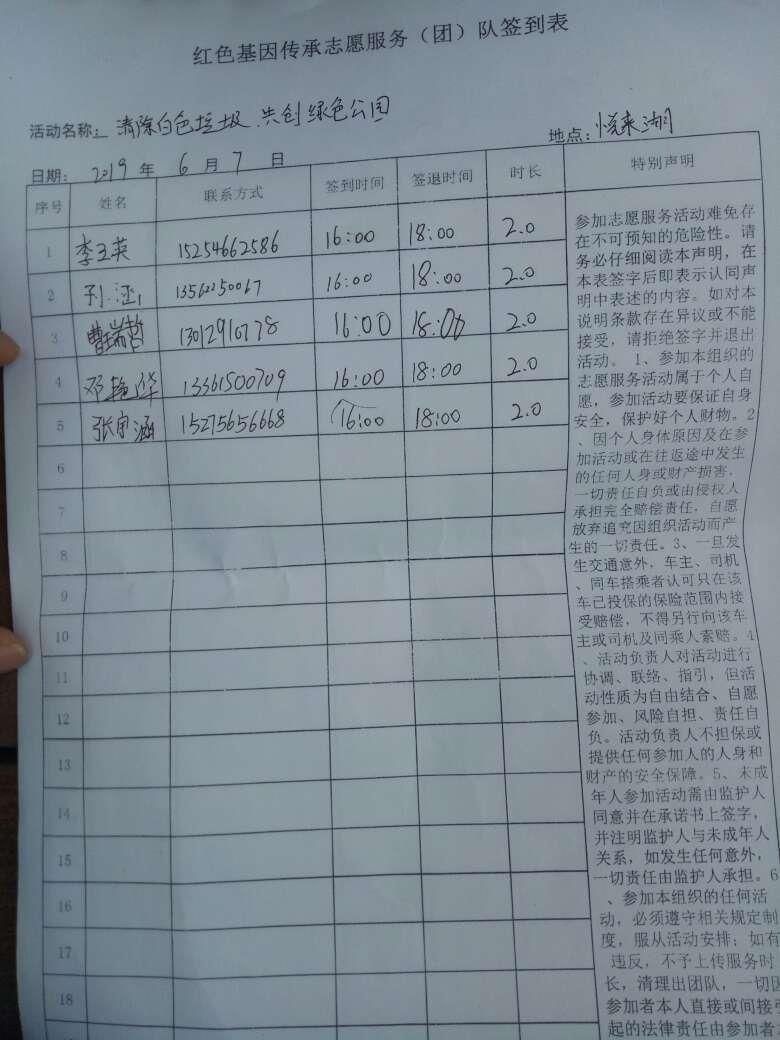 红色基因传承志愿服务（团）队签到表
活动名称：清除白色垃圾、共创绿色公园
地点：悦来湖
日期：2019 年 6 月 7 日
序号 姓名 联系方式 签到时间 签退时间 时长 特别声明
1 李玉英 15254662586 16:00 18:00 2.0
2 孙 16:00 18:00 2.0
3 曹瑞哲 16:00 18:00 2.0
4 邓艳华 13361500709 16:00 18:00 2.0
5 张宇涵 15275656668 16:00 18:00 2.0
6
7
8
9
10
11
12
13
14
15
16
17
18
参加志愿服务活动难免存
在不可预知的危险性。请
务必仔细阅读本声明，在
本表签字后即表示认同声
明中表述的内容。如对本
说明条款存在异议或不能
接受，请拒绝签字并退出
活动。 1、参加本组织的
志愿服务活动属于个人自
愿，参加活动要保证自身
安全，保护好个人财物。2
、因个人身体原因及在参
加活动或在往返途中发生
的任何人身或财产损害，
一切责任自负或由侵权人
承担完全赔偿责任，自愿
放弃追究因组织活动而产
生的一切责任。3、一旦发
生交通意外，车主、司机
、同车搭乘者认可只在该
车已投保的保险范围内接
受赔偿，不得另行向该车
主或司机及同乘人索赔。4
、活动负责人对活动进行
协调、联络、指引，但活
动性质为自由结合、自愿
参加、风险自担、责任自
负。活动负责人不担保或
提供任何参加人的人身和
财产的安全保障。5、未成
年人参加活动需由监护人
同意并在承诺书上签字，
并注明监护人与未成年人
关系，如发生任何意外，
一切责任由监护人承担。6
、参加本组织的任何活
动，必须遵守相关规定制
度，服从活动安排；如有
违反，不予上传服务时
长，清理出团队，一切因
参加者本人直接或间接引
起的法律责任由参加者本